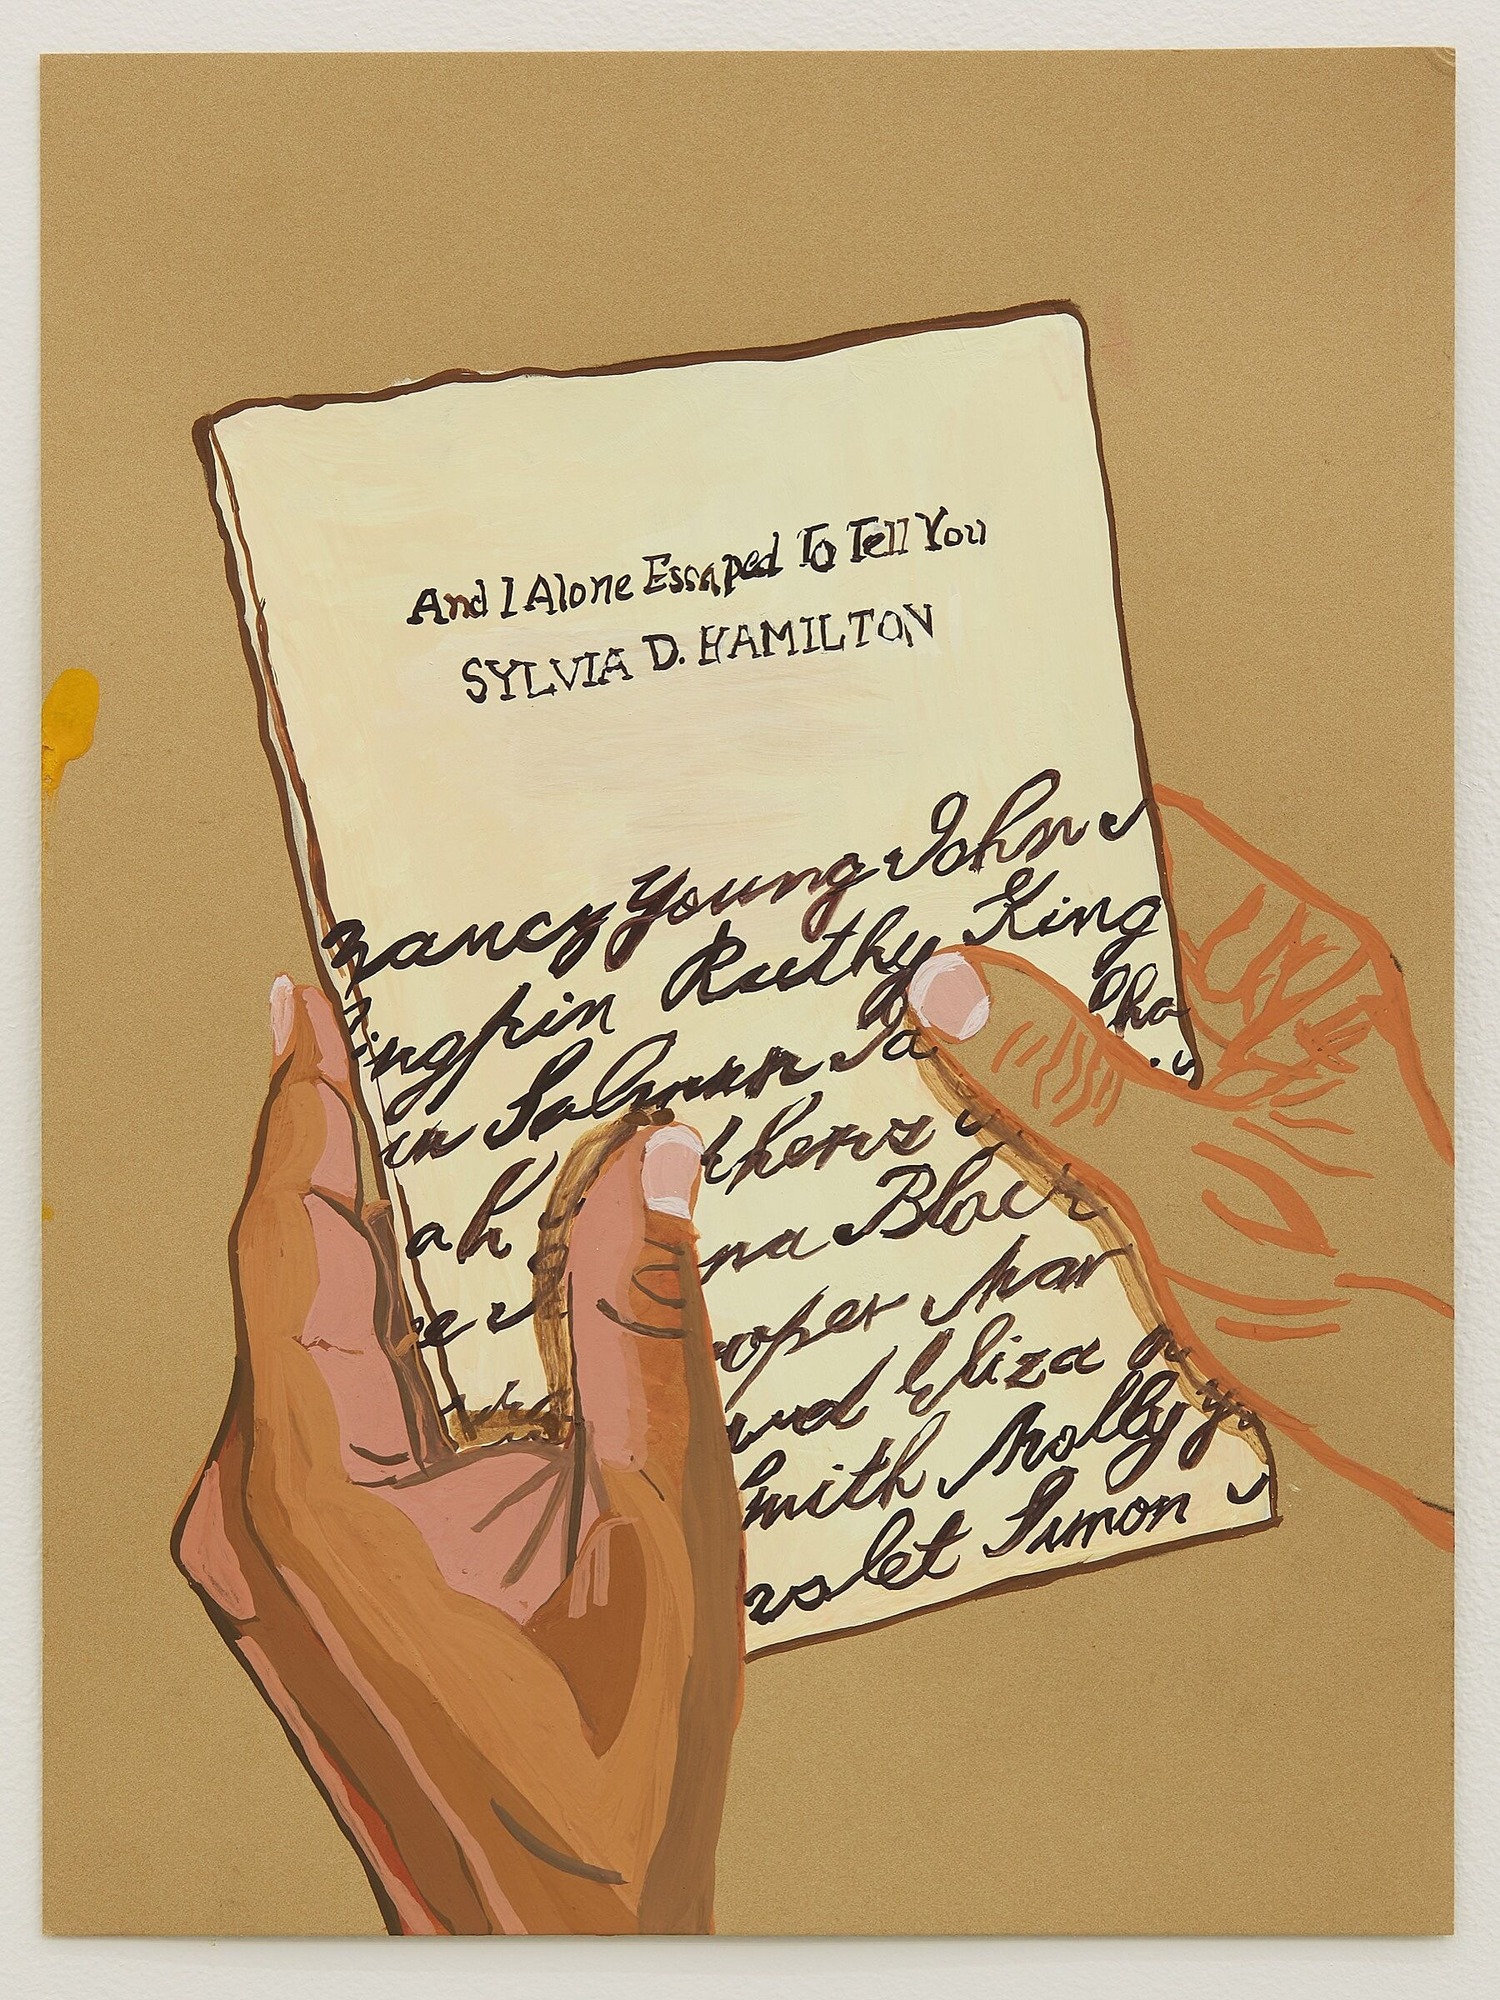 And I Alone Escaped To Tell You
SYLVIA D. HAMILTON
Nancy Young John
ngpin Ruthy King
in Solomon Sa Cha
ah thers
na Black
ooper Mar
and Eliza
Smith Molly
let Simon